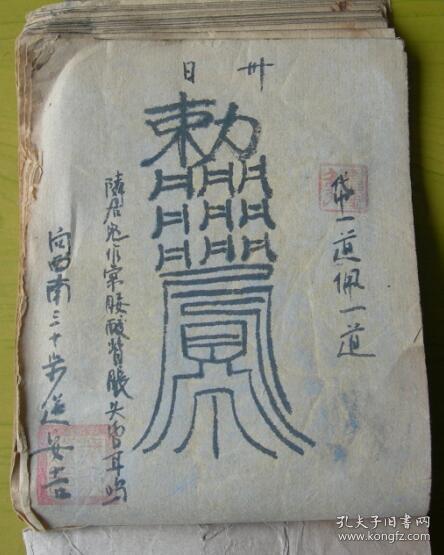 卅日
一道佩一道
勅
隣居鬼作祟腰酸背脹头昏耳鸣
向西南三十步送安吉
孔夫子旧书网
www.kongfz.com